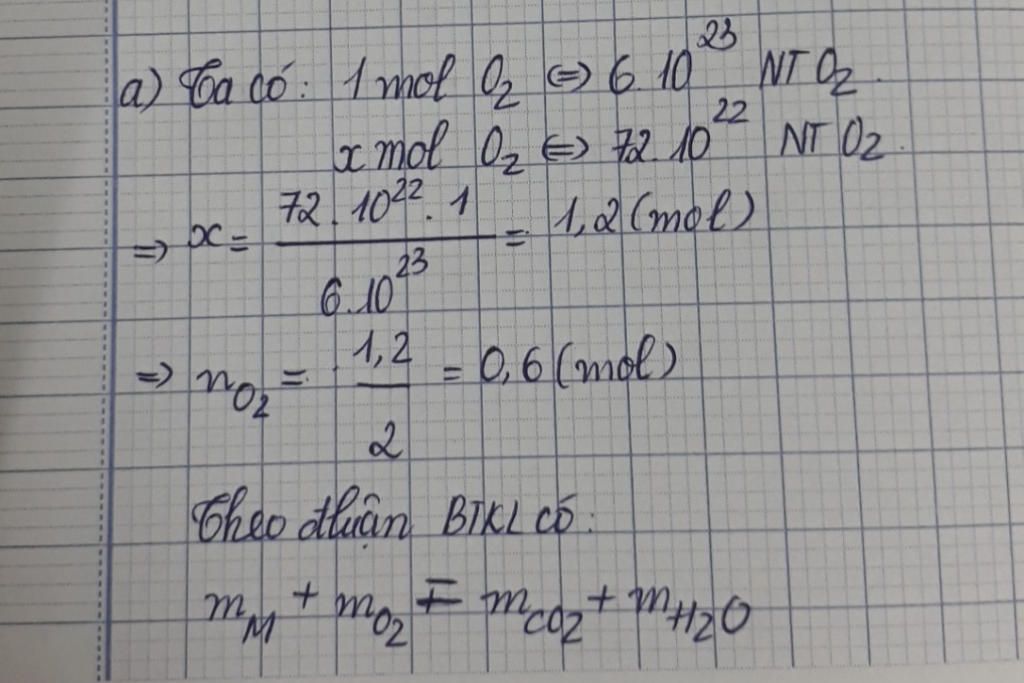 a) Ta có: 1 mol O₂ ⇔ 6.10²³ NT O₂.
x mol O₂ ⇔ 72.10²² NT O₂.
⇒ x = (72.10²².1)/(6.10²³) = 1,2 (mol)
⇒ nO₂ = 1,2/2 = 0,6 (mol)
Theo đluận BTKL có:
mM + mO₂ = mCO₂ + mH₂O